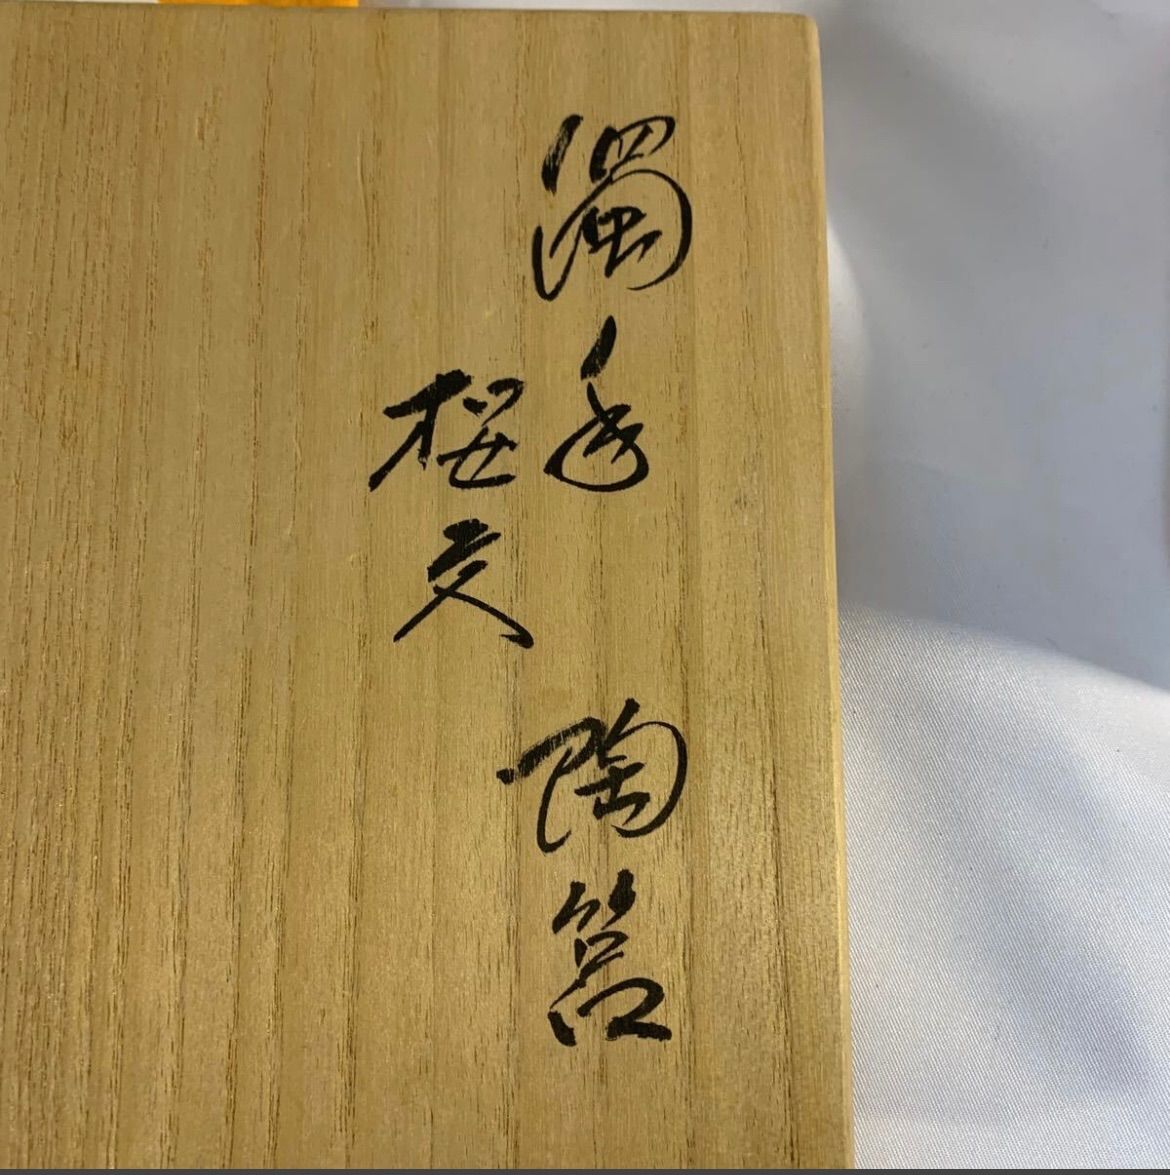 濁手
桜文
陶筥